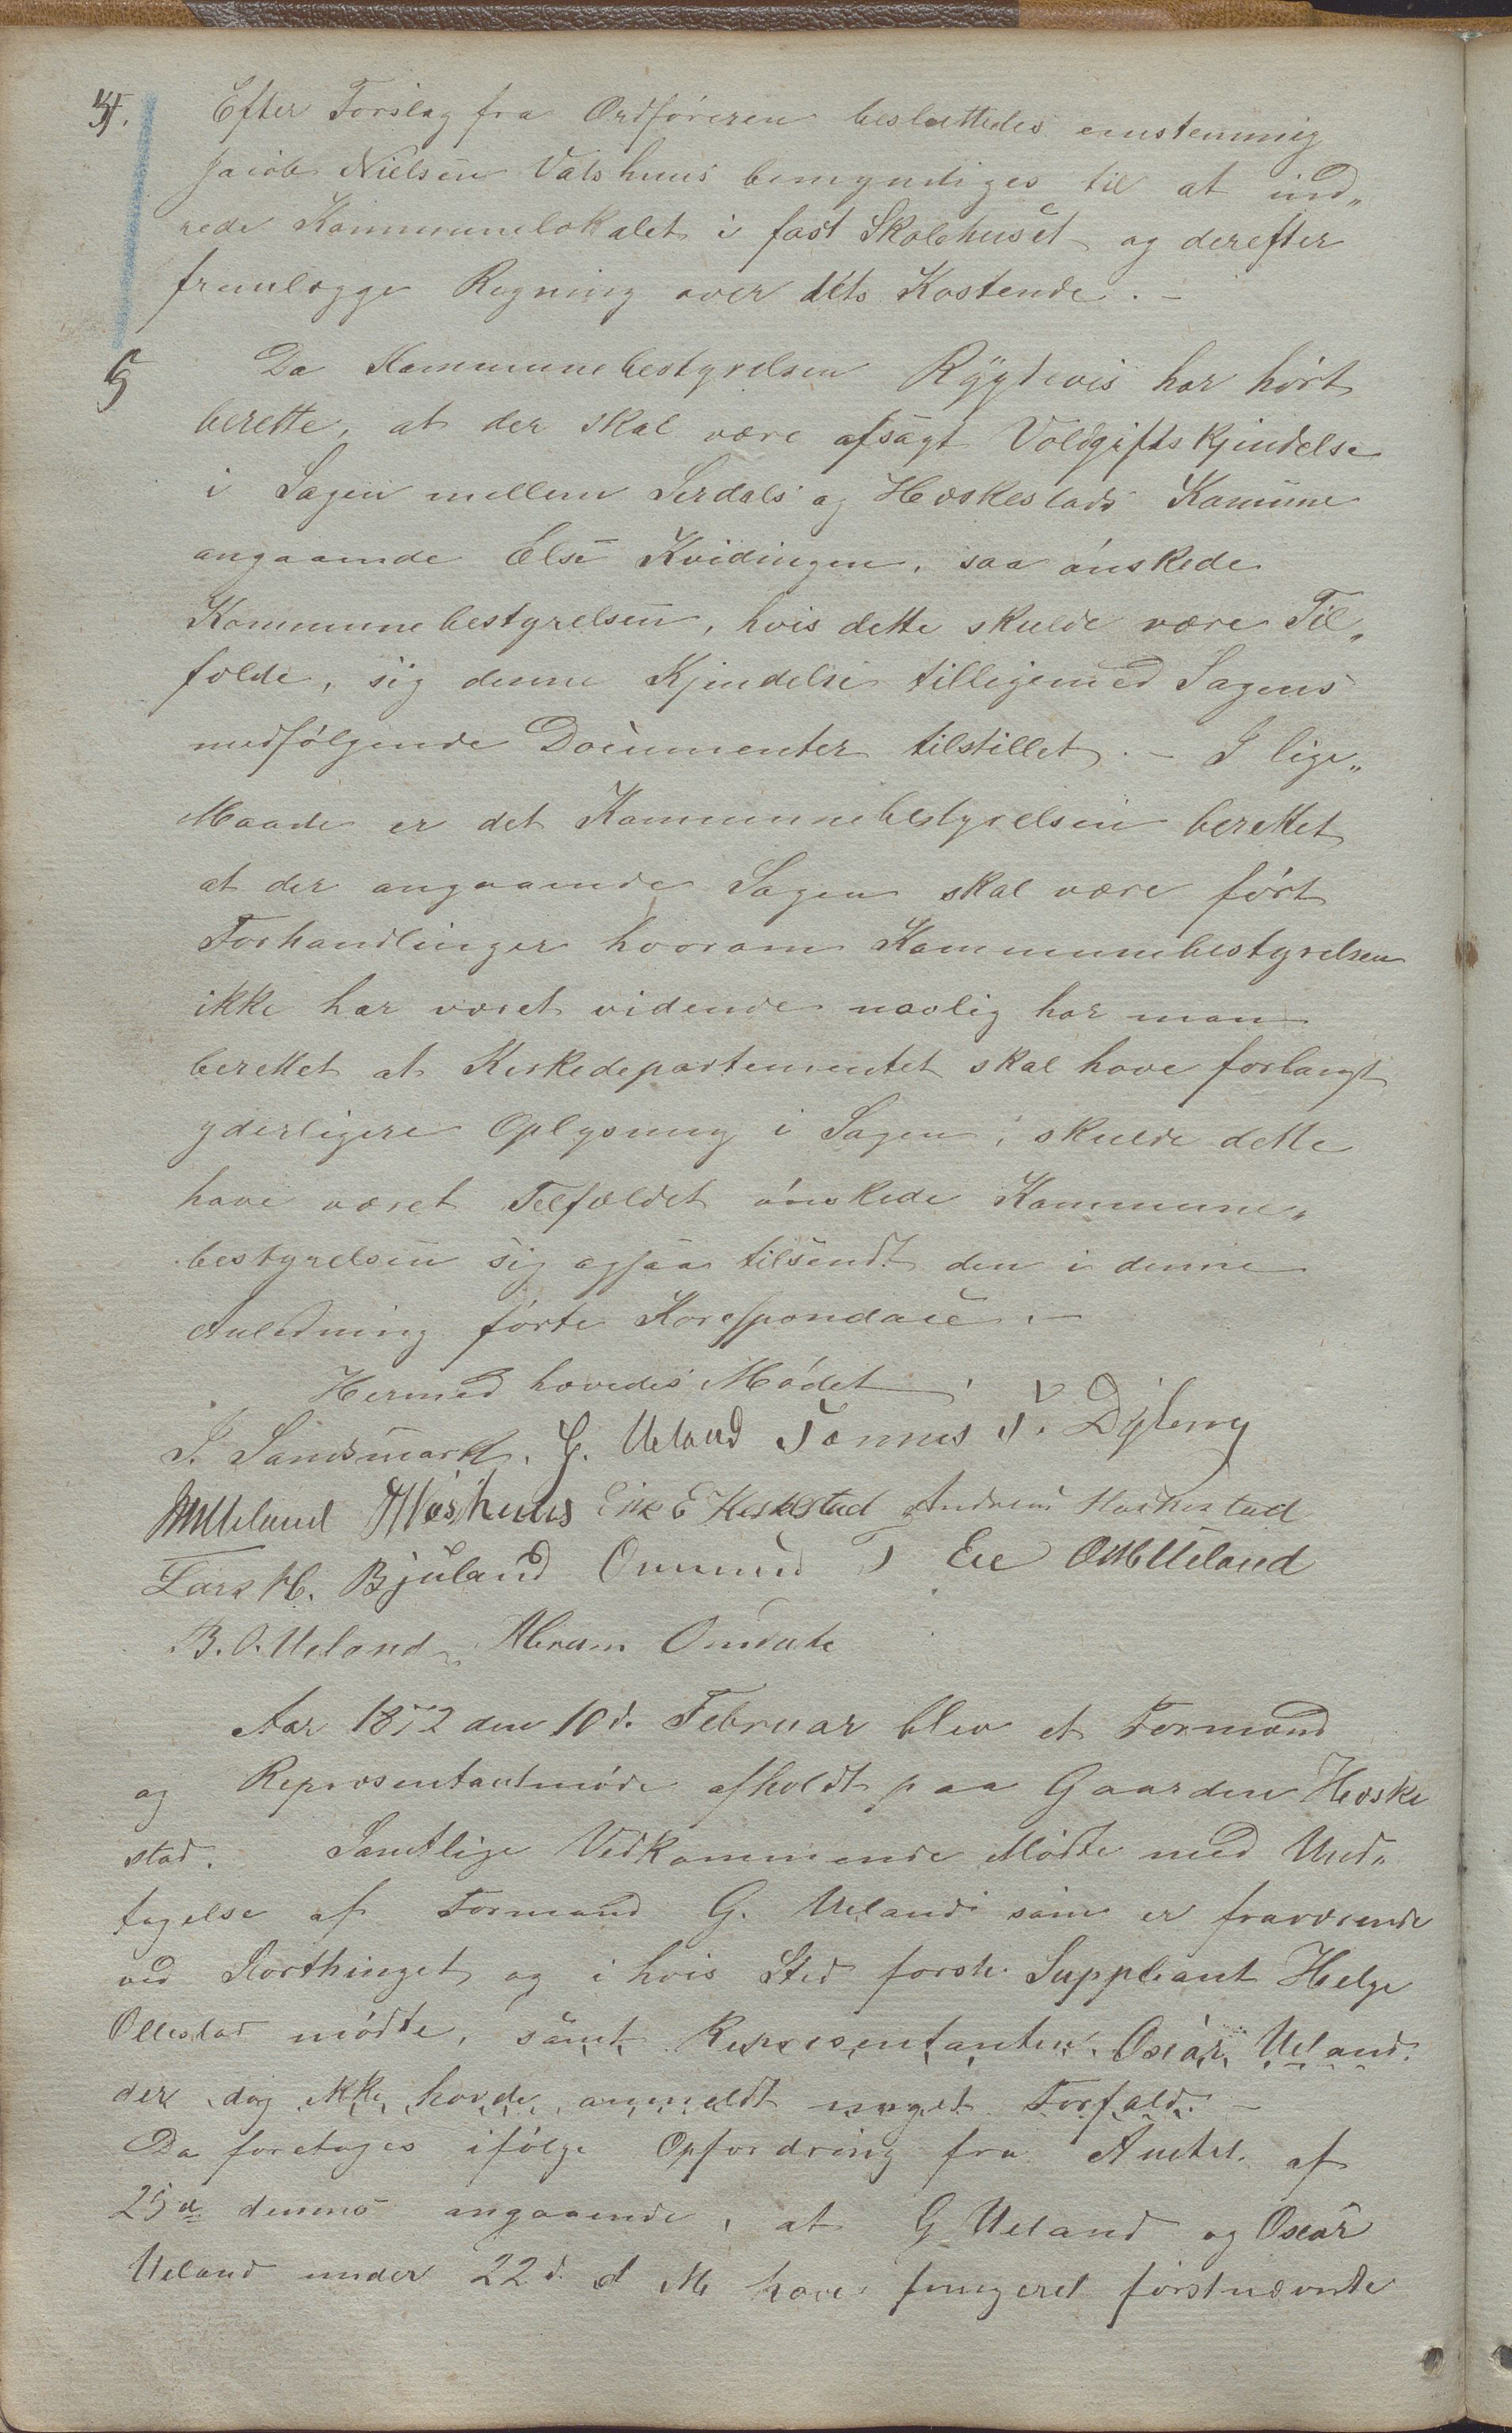 4. Efter Forslag fra Ordføreren besluttedes eenstemmig
Jacob Nielsen Vatshuus bemyndiges til at ind„
rede Kommunelokalet i fast Skolehuset og derefter
fremlægge Regning over dets Kostende. –
5 Da Kommunebestyrelsen Rygtevis har hørt
berette, at der skal være afsagt Voldgiftskjendelse
i Sagen mellem Sirdals og Heskestads Komune
angaaende Else Kvidingen, saa ønskede
Kommunebestyrelsen, hvis dette skulde være Til„
fælde, sig denne Kjendelse tilligemed Sagens
medfølgende Documenter tilstillet. – I lige„
Maade er det Kommunebestyrelsen berettet
at der angaaende Sagen skal være ført
Forhandlinger hvorom Kommunebestyrelsen
ikke har været vidende navlig har man
berettet at Kirkedepartementet skal have forlangt
yderligere Oplysning i Sagen; skulde dette
have været Tilfældet ønskede Kommune„
bestyrelsen sig ogsaa tilsendt den i denne
Anledning førte Korespondace. –
Hermed hævedes Mødet.
S. Sandsmark. G. Ueland Tønnes T. Dybing
Ueland Vashuus Eik E Heskestad Andreas Heskestad
Lars H. Bjuland Ommund T Eie OM Ueland
B. O. Ueland Abram Omdale
Aar 1872 den 10d. Februar blev et Formand
og Repræsentantmøde afholdt paa Gaarden Heske
stad. Samtlige Vedkommende Mødte med Und„
tagelse af Formand G. Ueland som er fraværende
ved Storthinget og i hvis Sted første Suppleant Helge
Ollestad mødte, samt Repræsentanten Oscar Ueland.
der dog ikke havde anmeldt noget Forfald. –
Da foretoges ifølge Opfordring fra Amtet af
25de dennes angaaende, at G Ueland og Oscar
Ueland under 22d. d M have fungeret førstnævnte